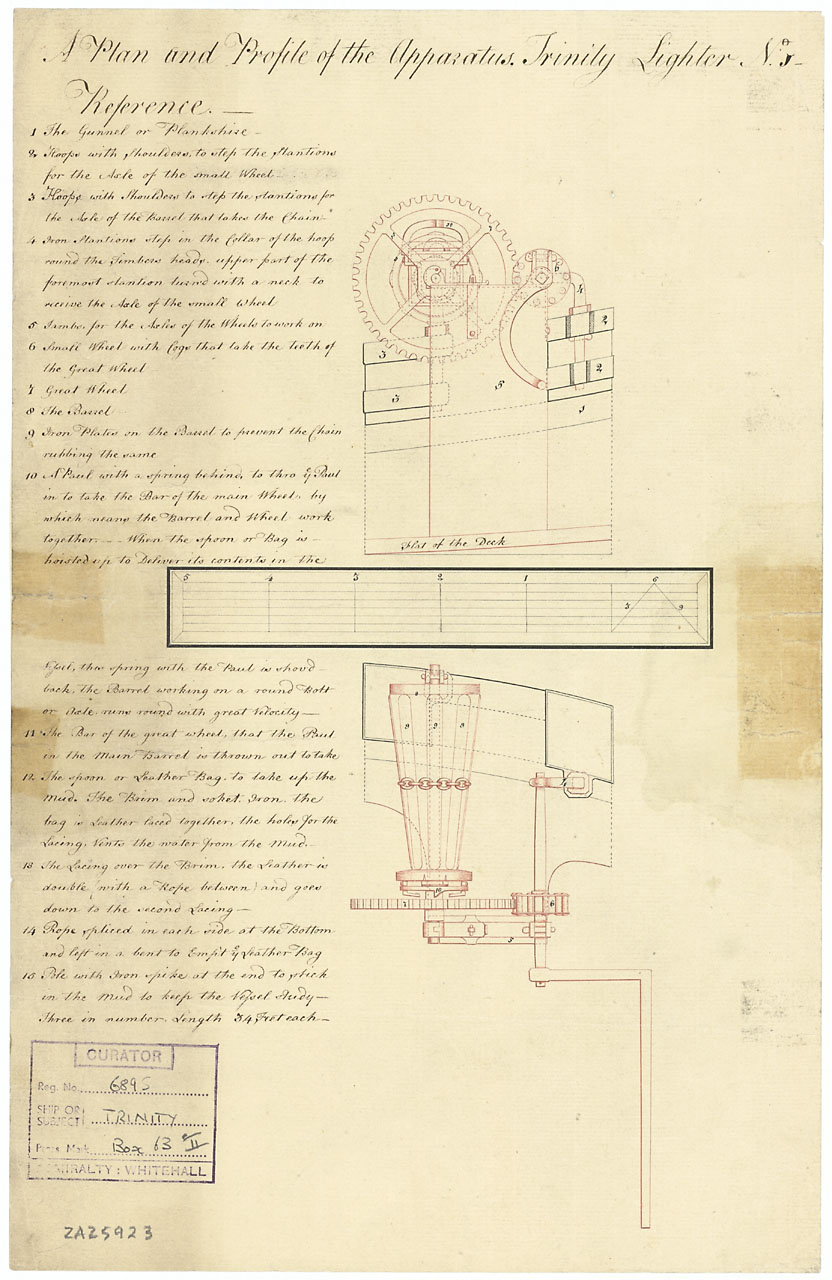 A Plan and Profile of the Apparatus. Trinity Lighter No.
Reference. —
1 The Gunnel or Plankshire -
2 Hoops with Shoulders, to step the Stantions
for the Axle of the small Wheel
3 Hoops with Shoulders to step the stantions for
the Axle of the Barrel that takes the Chain
4 Iron Stantions step in the Collar of the hoop
round the Timbers heads, upper part of the
foremost stantion turn'd with a neck to
receive the Axle of the small Wheel
5 Jambs, for the Axles of the Wheels to work on
6 Small Wheel with Cogs that take the teeth of
the Great Wheel
7 Great Wheel
8 The Barrel
9 Iron Plates on the Barrel to prevent the Chain
rubbing the same
10 A Paul with a spring behind, to thro ye Paul
in to take the Bar of the main Wheel, by
which means the Barrel and Wheel work
together. — When the spoon or Bag is -
hoisted up to Deliver its contents in the
Vessel, this spring with the Paul is shov'd -
back, the Barrel working on a round Bolt
or Axle, runs round with great Velocity —
11 The Bar of the great wheel, that the Paul
in the Main Barrel is thrown out to take
12 The spoon or Leather Bag, to take up the
Mud. The Brim and soket, Iron, the
bag is Leather laced together, the holes for the
Lacing, Vents the water from the Mud.
13 The Lacing over the Brim, the Leather is
double (with a Rope between) and goes
down to the second Lacing —
14 Rope spliced in each side at the Bottom
and left in a bent to Empt ye Leather Bag
15 Pole with Iron spike at the end to stick
in the Mud to keep the Vessel study —
Three in number. Length 34 Feet each —
11
6
4
2
3
2
3
5
1
Flat of the Deck
5 4 3 2 1 6
3 9
8
9 2 8
10
7 6
5
CURATOR
Reg. No. 6895
SHIP OR
SUBJECT TRINITY
Press Mark Box 63 II
ADMIRALTY: WHITEHALL
ZAZ5923